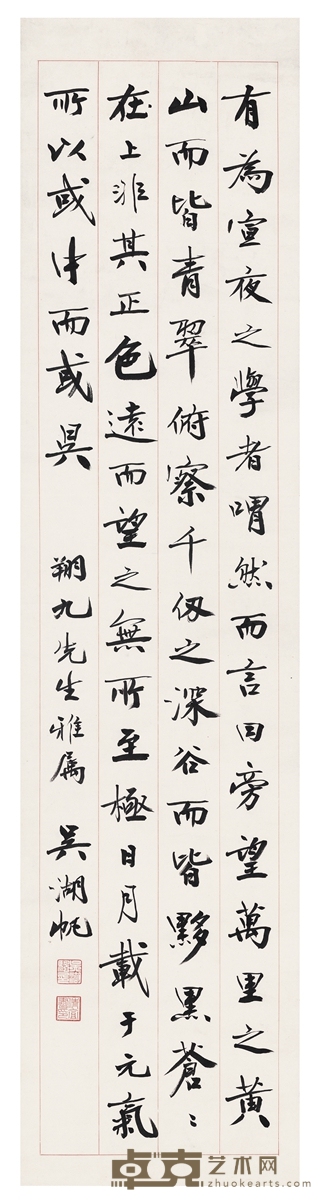 有為宣夜之學者喟然而言曰旁望萬里之黄
山而皆青翠俯察千仭之深谷而皆黟黒蒼〻
在上非其正色遠而望之無所至極日月載于元氣
所以或中而或昃
翔九先生雅属
吳湖帆
卓克艺术网
www.zhuokearts.com